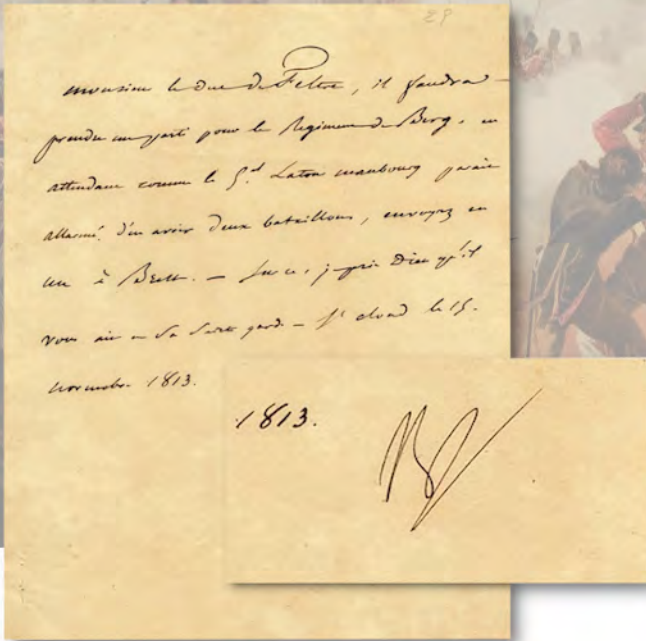 EP
monsieur le Duc de Feltre, il faudra
prendre un parti pour le Régiment de Berg. en
attendant comme le gal Latour maubourg parait
allarmé d'en avoir deux bataillons, envoyez en
un à Brest. — Sur ce, je prie Dieu qu'il
vous ait en Sa Sainte garde — St cloud le 15.
novembre 1813.
1813.